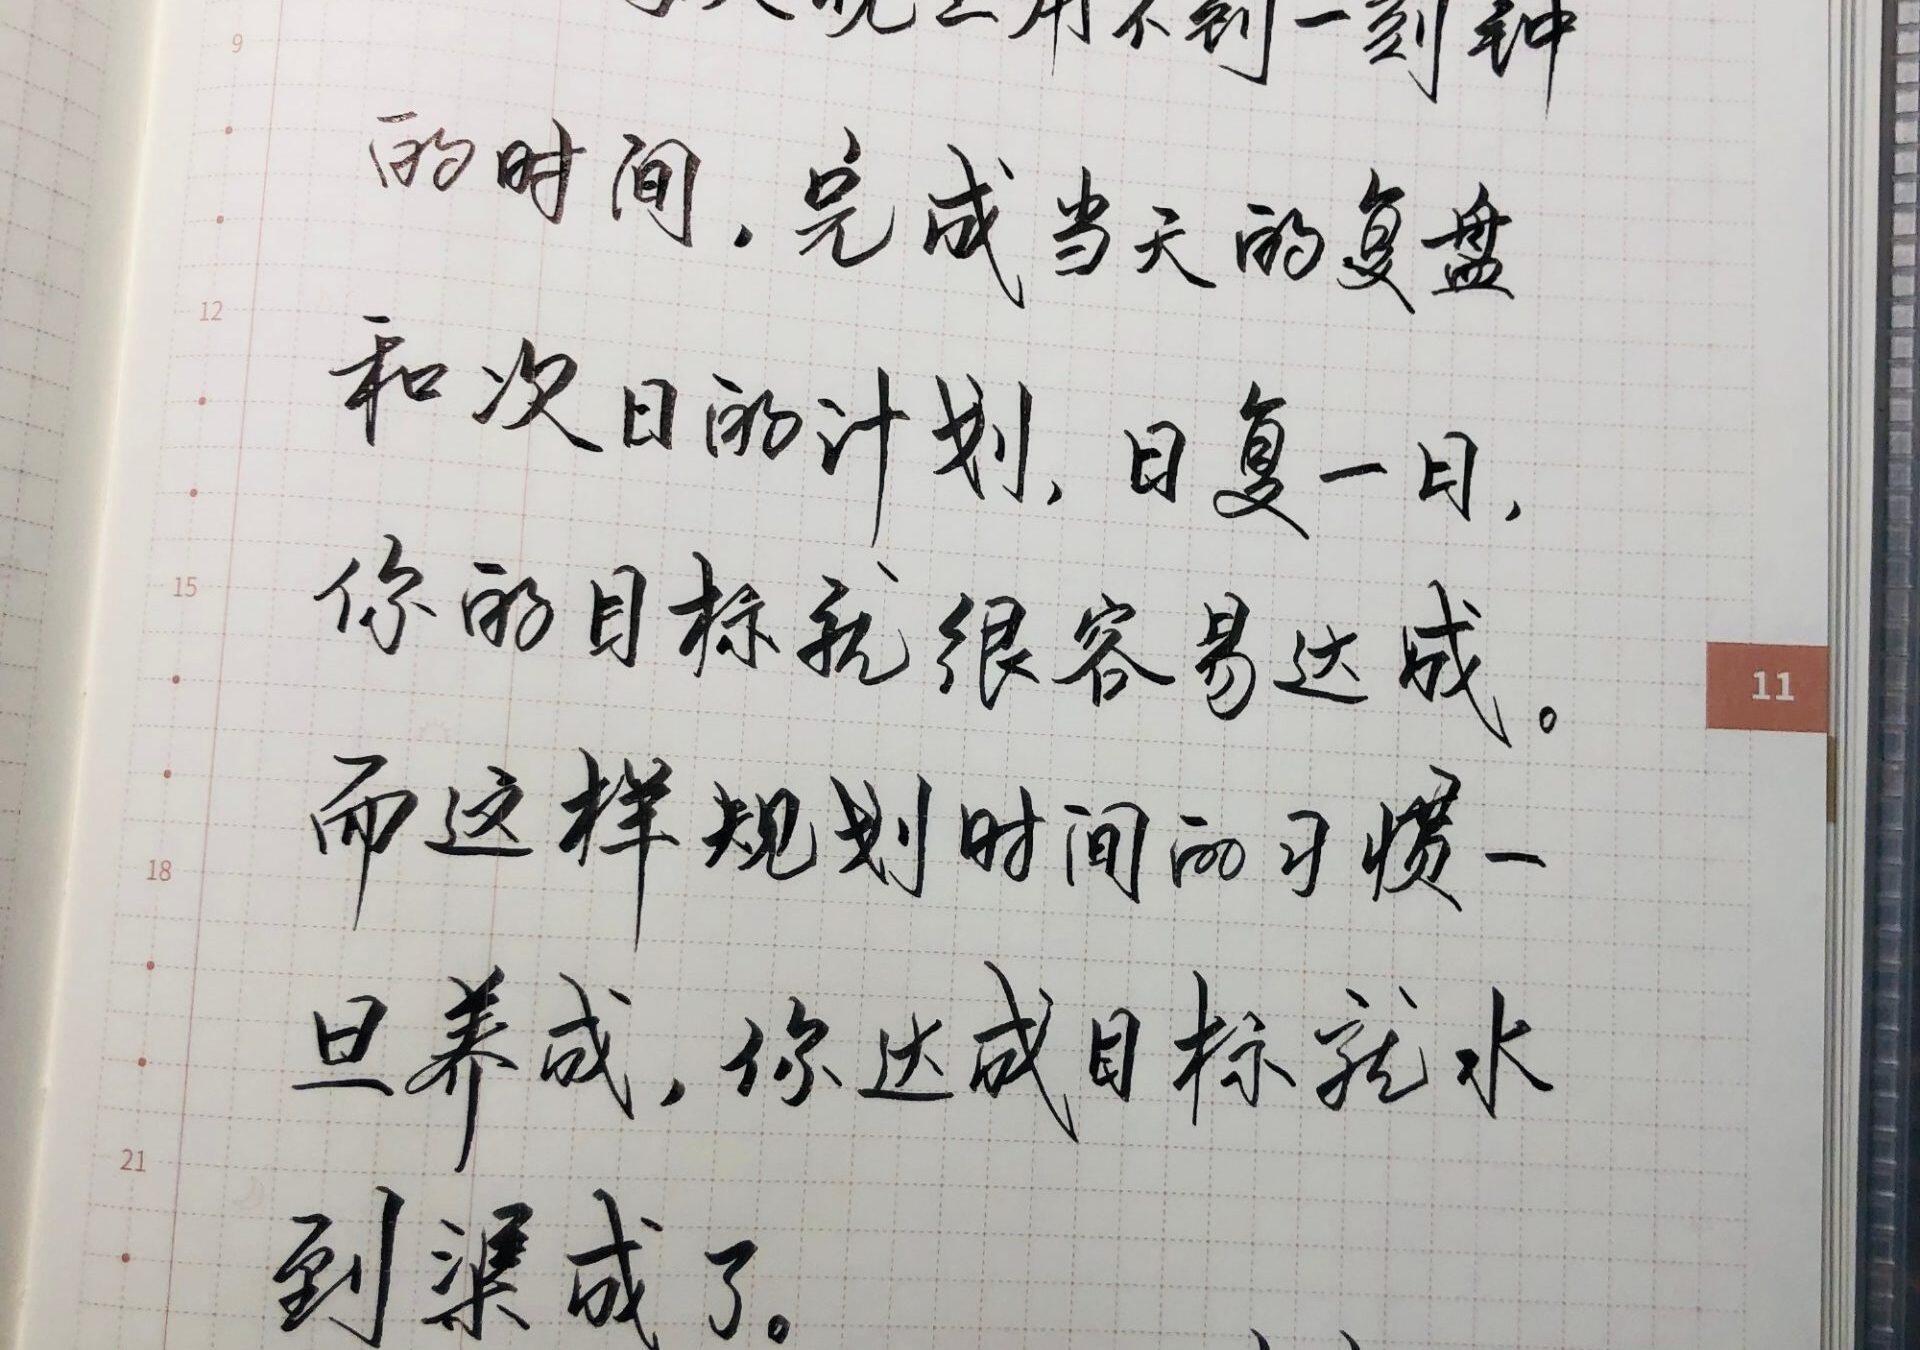 每天晚上用不到一刻钟
的时间，完成当天的复盘
和次日的计划，日复一日，
你的目标就很容易达成。
而这样规划时间的习惯一
旦养成，你达成目标就水
到渠成了。
9
12
15
18
21
11